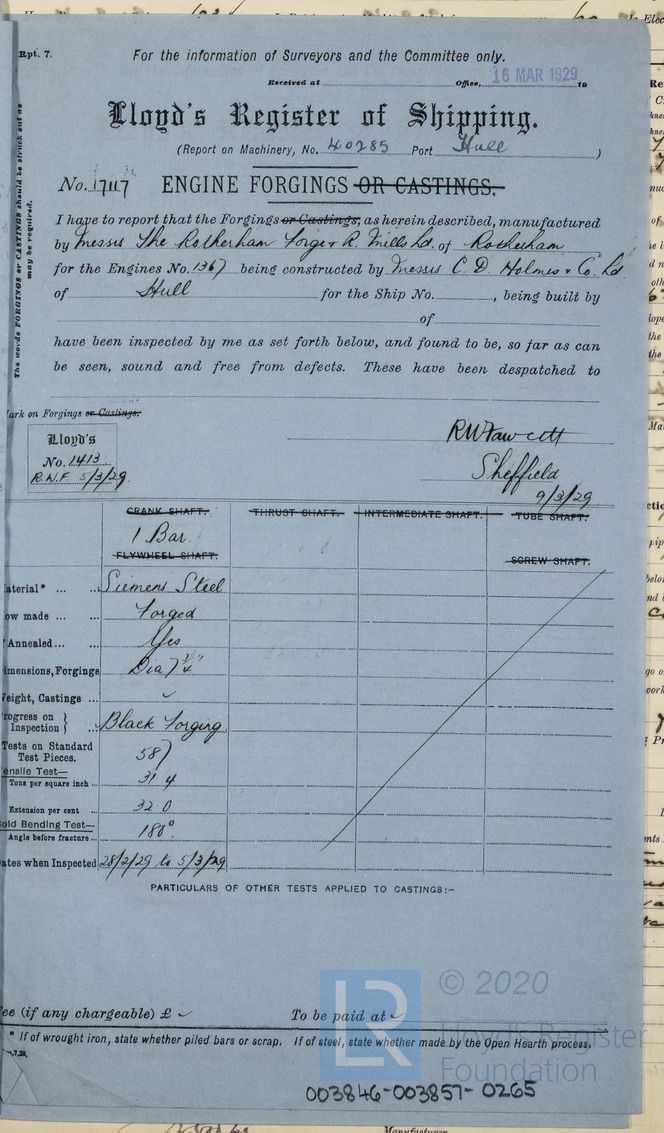 Rpt. 7.
For the information of Surveyors and the Committee only.
Received at Office, 16 MAR 1929 19
Lloyd's Register of Shipping.
(Report on Machinery, No. 40285 Port Hull )
No. 17117 ENGINE FORGINGS OR CASTINGS.
The words FORGINGS or CASTINGS should be struck out as
may be required.
I have to report that the Forgings or Castings, as herein described, manufactured
by Messrs The Rotherham Forge & R. Mills Ld. of Rotherham
for the Engines No. 1367 being constructed by Messrs C. D. Holmes & Co. Ld
of Hull for the Ship No. , being built by
of
have been inspected by me as set forth below, and found to be, so far as can
be seen, sound and free from defects. These have been despatched to
ark on Forgings or Castings.
Lloyd's
No. 1413
R.W.F 5/3/29.
RWFawcett
Sheffield
9/3/29.
CRANK SHAFT. THRUST SHAFT. INTERMEDIATE SHAFT. TUBE SHAFT.
1 Bar.
FLYWHEEL SHAFT. SCREW SHAFT.
aterial* ... ... Siemens Steel
ow made ... ... Forged
Annealed ... ... Yes
imensions, Forgings Dia 7 1/4"
eight, Castings ...
rogress on
Inspection } Black Forging
Tests on Standard
Test Pieces. 587
ensile Test—
Tons per square inch ... 31.4
Extension per cent ... 32.0
old Bending Test—
Angle before fracture ... 180°.
ates when Inspected 28/2/29 to 5/3/29
PARTICULARS OF OTHER TESTS APPLIED TO CASTINGS:—
ee (if any chargeable) £ To be paid at
* If of wrought iron, state whether piled bars or scrap. If of steel, state whether made by the Open Hearth process,
LR
© 2020
Lloyd's Register
Foundation
003846-003857-0265